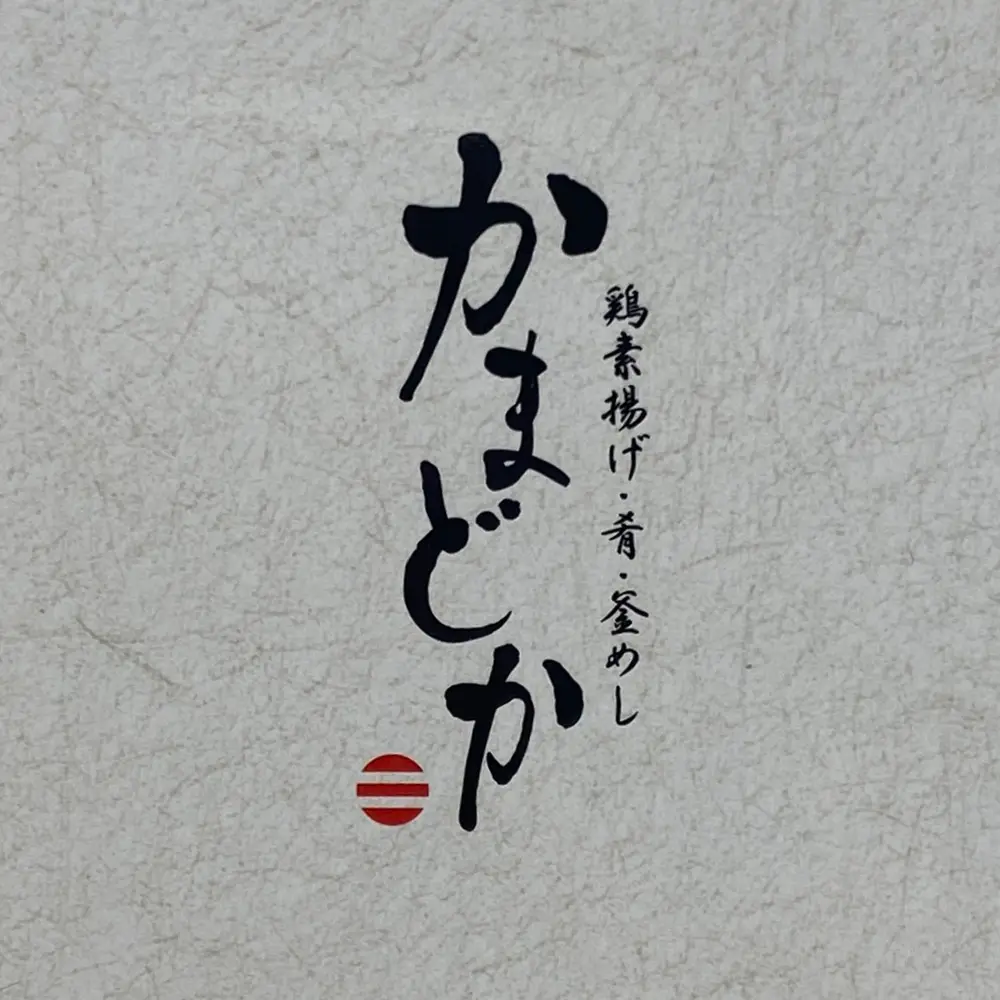 鶏素揚げ・肴・釜めし
かまどか